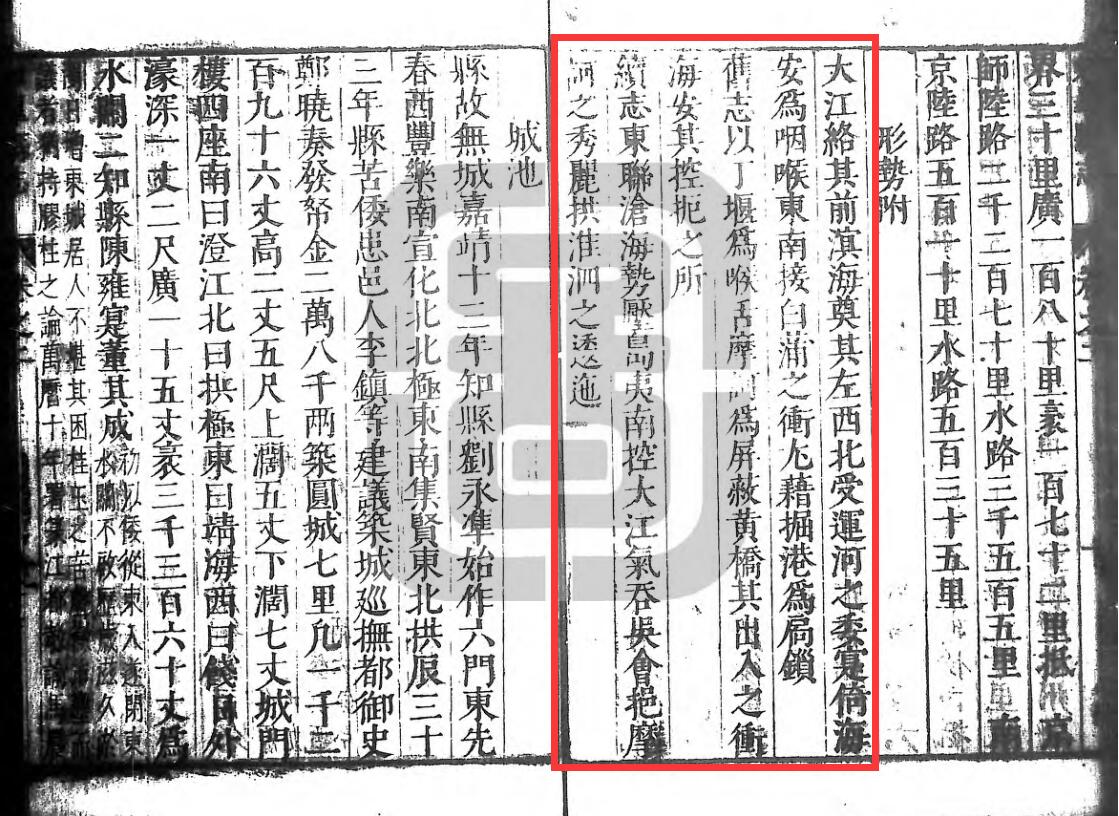 界三十里廣一百八十里袤一百七十二里抵京
師陸路二千二百七十里水路三千五百五里南
京陸路五百一十里水路五百三十五里
形勢附
大江絡其前滨海奠其左西北受運河之委寔倚海
安爲咽喉東南接白蒲之衝尤藉掘港爲局鎖
舊志以丁堰爲喉舌摩訶爲屏蔽黄橋其出入之衝
海安其控扼之所
續志東聯滄海勢壓島夷南控大江氣吞吳會挹摩
訶之秀麗拱淮泗之逶迤
城池
縣故無城嘉靖十三年知縣劉永準始作六門東先
春西豐樂南宣化北北極東南集賢東北拱辰三十
三年縣苦倭患邑人李鎮等建議築城巡撫都御史
鄭曉奏發帑金二萬八千两築圓城七里凢一千二
百九十六丈高二丈五尺上濶五丈下濶七丈城門
樓四座南曰澄江北曰拱極東曰靖海西曰餞日外
濠深一丈二尺廣一十五丈袤三千三百六十丈爲
水關二知縣陳雍寔董其成
初以倭從東入遂閉東
水關不啟歷歲滋久
東城居人不堪其困
者 持膠柱之論萬曆十年署篆江都